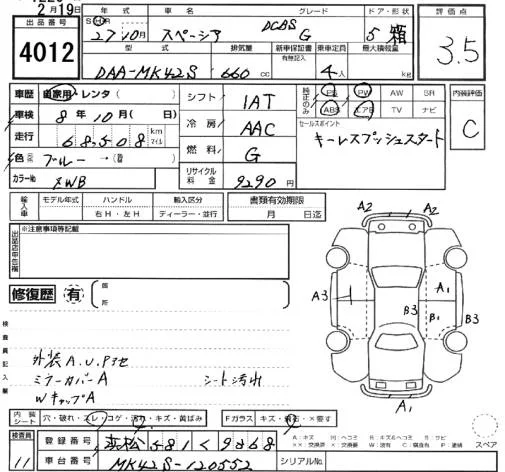 2月19日
出品番号
4012
年式 車名 グレード ドア・形状
27年10月 スペーシア DCBS G 5 箱
型式 排気量 新車保証書 有無記入 乗車定員 最大積載量
DAA-MK42S 660 cc 4人 kg
評価点
3.5
車歴 自家用・レンタ
車検 8年10月(日)
走行 68508 km マイル
色 ブルー→
カラーNo ZWB
シフト 1AT
冷房 AAC
燃料 G
リサイクル料金 9290円
純正のみ
PS PW AW SR
ABS エアB TV ナビ
セールスポイント
キーレスプッシュスタート
内装評価
C
輸入車 モデル年式 ハンドル 右H・左H 輸入区分 ディーラー・並行
書類有効期限
月 日迄
出品店申告欄
※注意事項等記載
修復歴 有
箇所
検査員記入欄
外装A.U.P3セ
ミラーカバーA
WキャップA
シート汚れ
A2 A2
A3 A1
B3 B1 B3
A1
内装シート 穴・破れ・スレ・コゲ・汚れ・キズ・黄ばみ
Fガラス キズ・飛石・×要す
スペア
検査員
11
登録番号 高松581く9868
車台番号 MK42S-120552
シリアルNo.